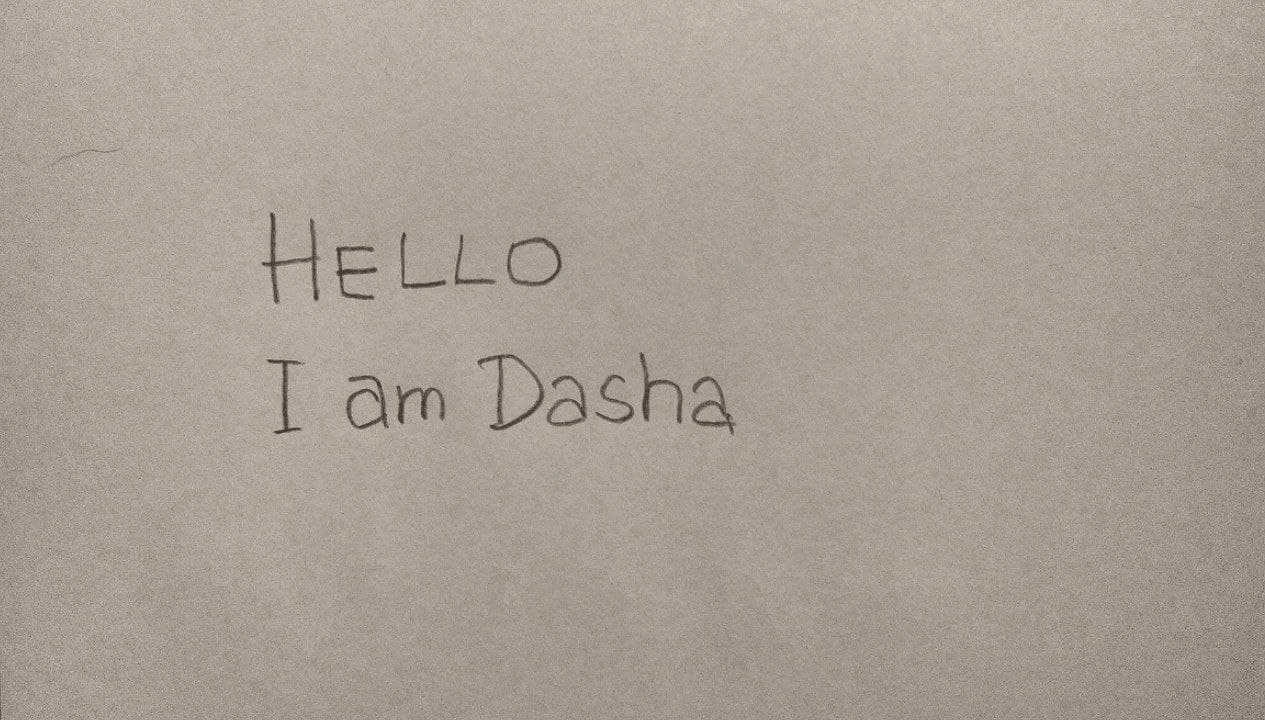 HELLO
I am Dasha